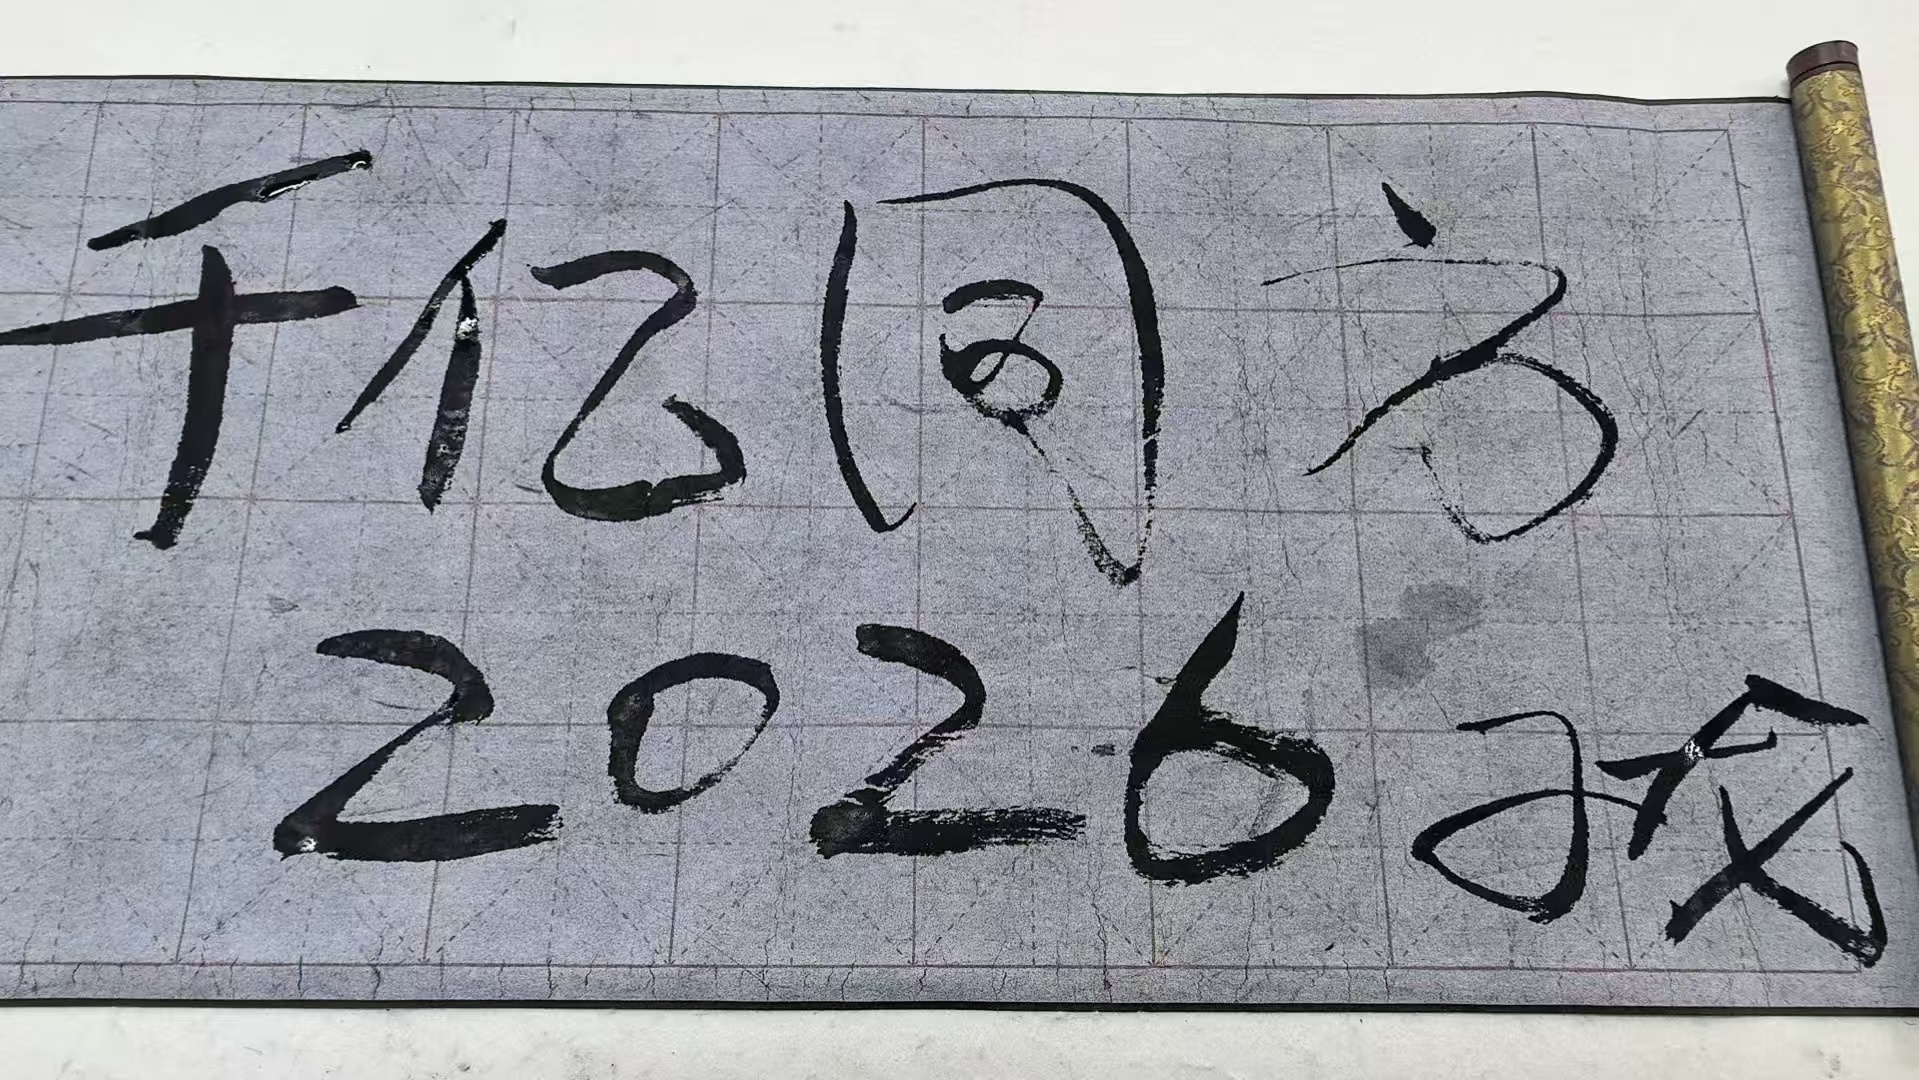 千亿同方
2026